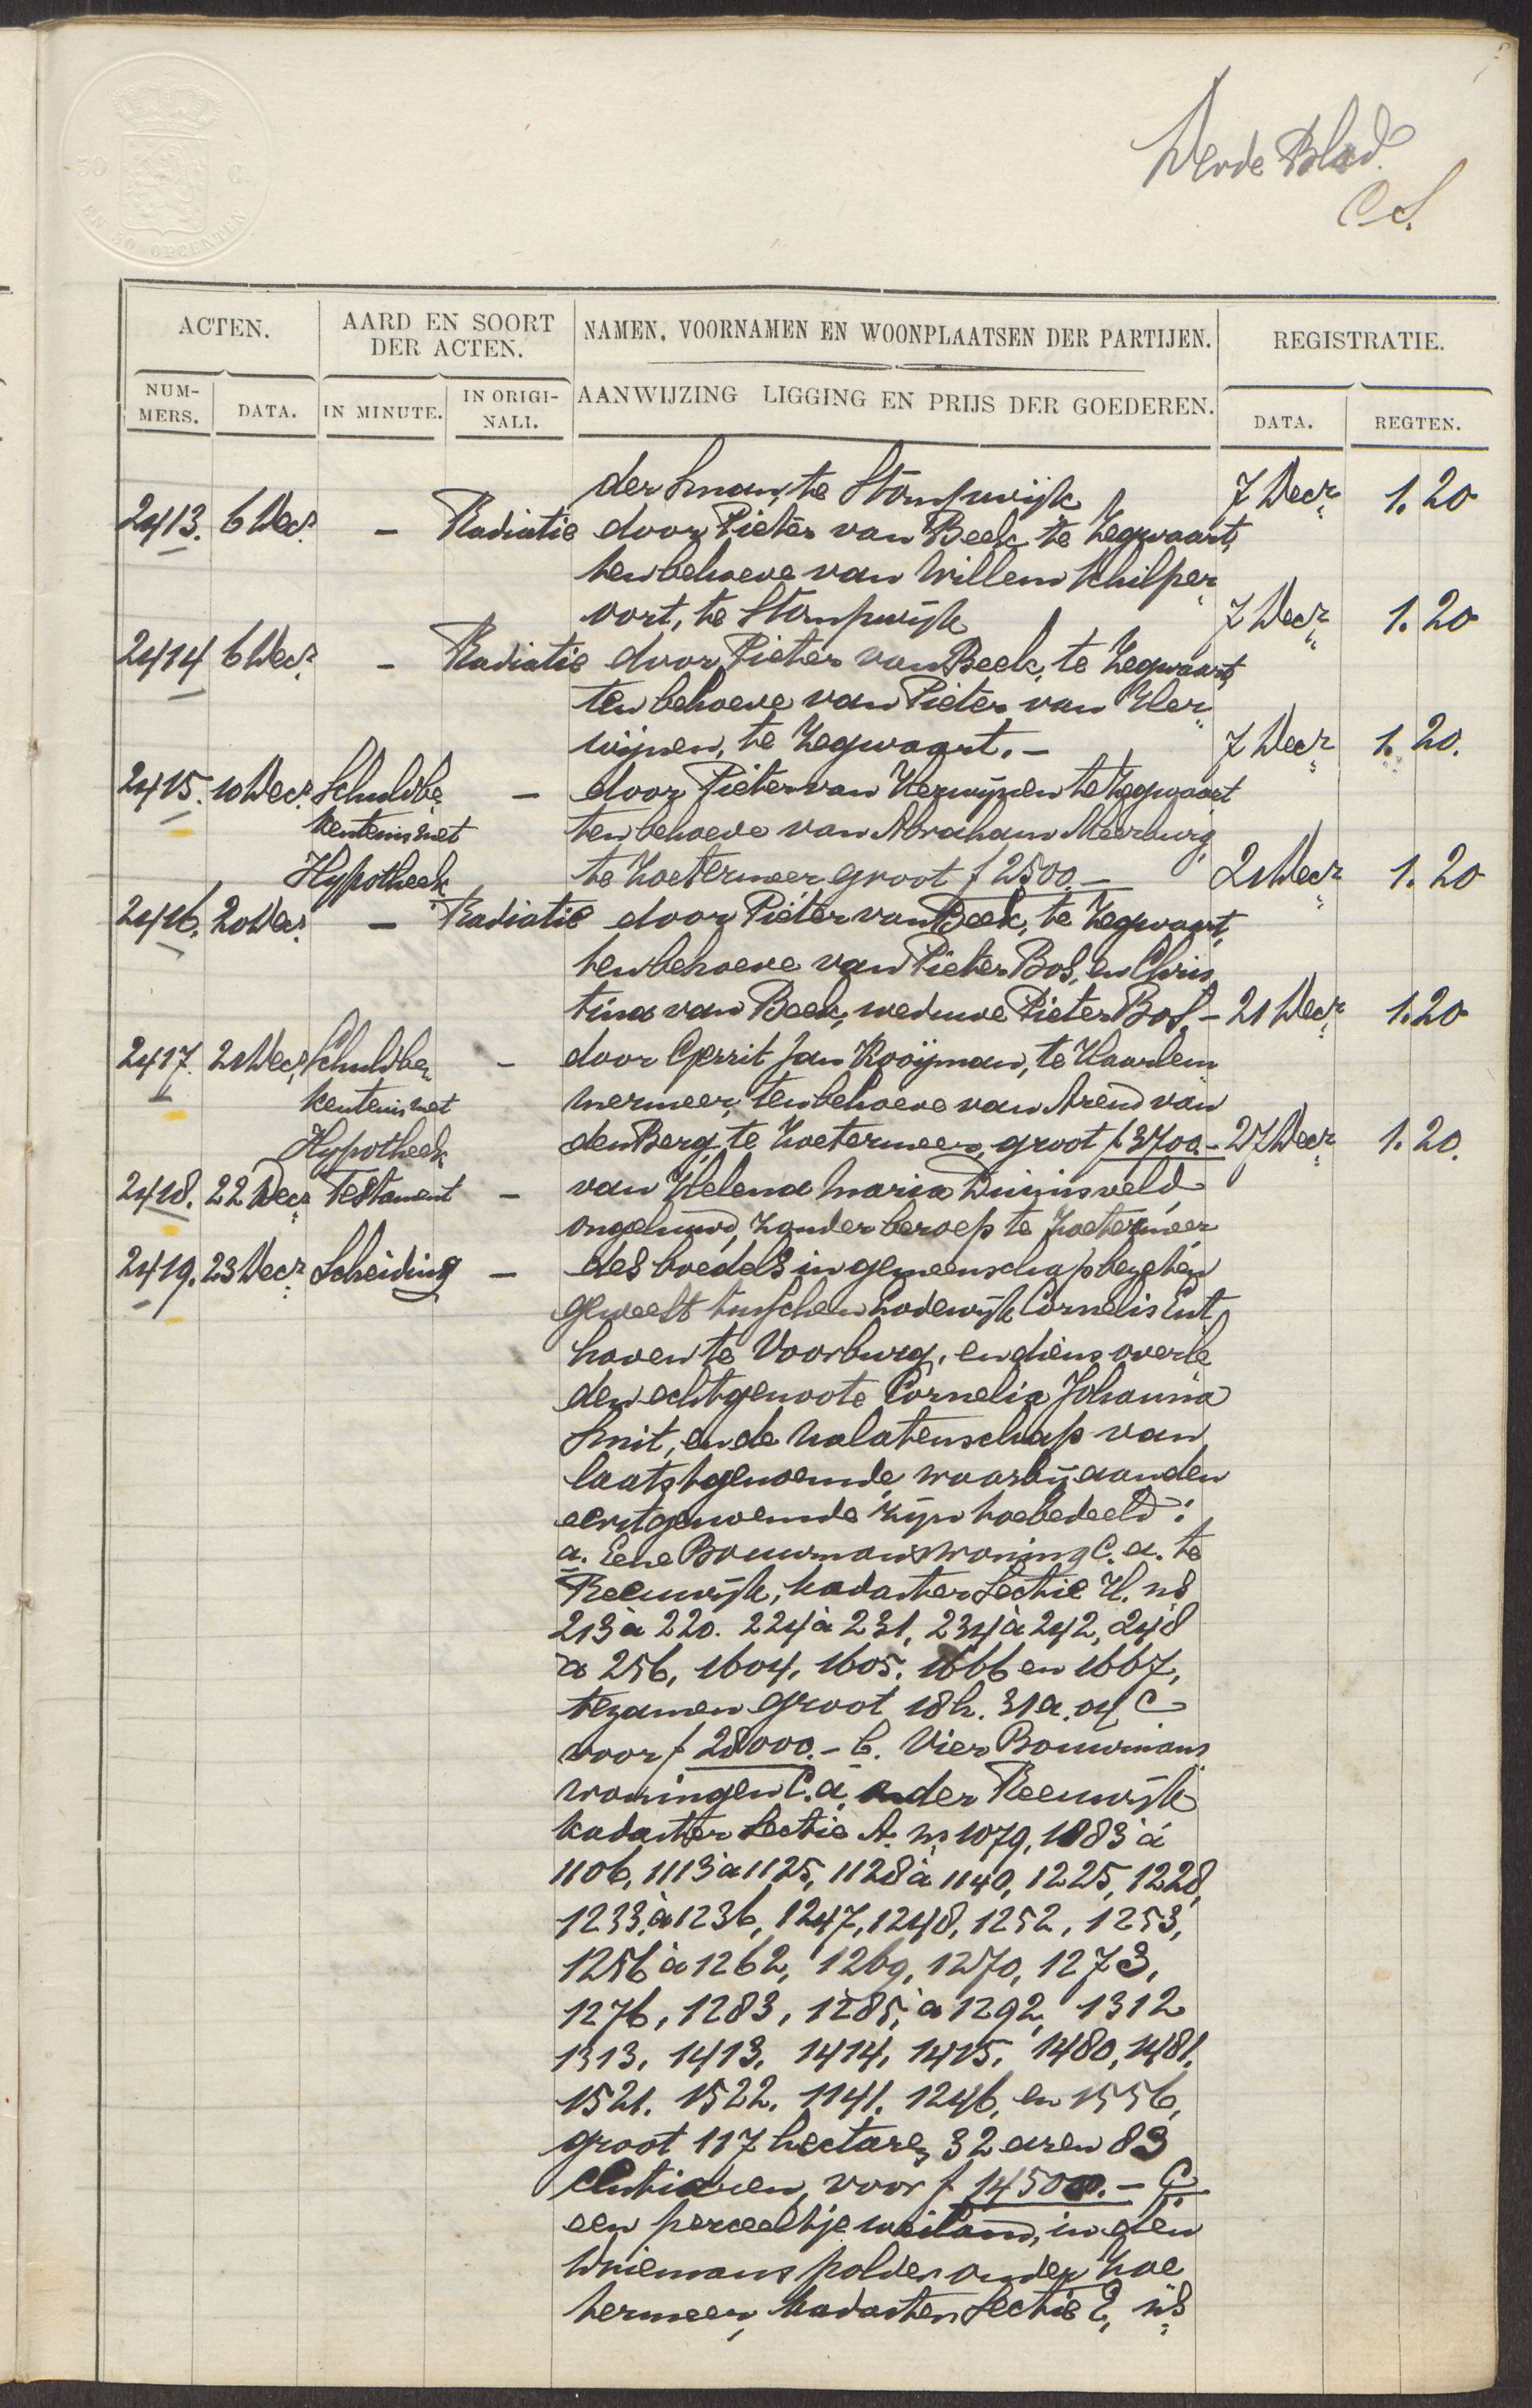 50 C.
EN 50 OPCENTEN
Derde Blad.
ACTEN.
AARD EN SOORT DER ACTEN.
NAMEN, VOORNAMEN EN WOONPLAATSEN DER PARTIJEN.
REGISTRATIE.
NUMMERS.
DATA.
IN MINUTE.
IN ORIGINALI.
AANWIJZING LIGGING EN PRIJS DER GOEDEREN.
DATA.
REGTEN.
der Sman, te Stompwijk 7 Decr 1.20
2413. 6 Decr - Radiatie door Pieter van Beek te Zegwaart,
ten behoeve van Willem Schilper
oort, te Stompwijk 7 Decr 1.20
2414 6 Decr - Radiatie door Pieter van Beek, te Zegwaart,
ten behoeve van Pieter van Her
wijnen, te Zegwaart. - 7 Decr 1.20.
2415. 10 Decr Schuldbe - door Pieter van Herwijnen te Zegwaart
kentenis met ten behoeve van Abraham Meerburg,
Hypotheek te Zoetermeer groot f 2500.- 21 Decr 1.20
2416. 20 Decr - Radiatie door Pieter van Beek, te Zegwaart,
ten behoeve van Pieter Bos, en Chris
tina van Beek, weduwe Pieter Bos. - 21 Decr 1.20
2417. 21 Decr Schuldbe - door Gerrit Jan Kooijman, te Haarlem
kentenis met mermeer, ten behoeve van Arend van
Hypotheek den Berg, te Zoetermeer, groot f 3700.- 27 Decr 1.20.
2418. 22 Decr Testament - van Helena Maria Duijnisveld
ongehuwd, zonder beroep te Zoetermeer
2419. 23 Decr Scheiding - des boedels in gemeenschap bezeten
geweest tusschen Lodewijk Cornelis Ent
hoven te Voorburg, en diens overle
den echtgenoote Cornelia Johanna
Smit, en de nalatenschap van
laatstgenoemde, waarbij aan den
eerstgenoemde zijn toebedeeld:
a. Eene Bouwmanswoning C.a. te
Reeuwijk, kadaster Sectie H. ns
213 à 220. 224 à 231, 234 à 242, 248
à 256, 1604, 1605. 1666 en 1667,
tezamen groot 18 h. 31 a. 04 C
voor f 28000.- b. Vier Bouwmans
woningen C.a. onder Reeuwijk
kadaster Sectie A. ns 1079, 1083 à
1106, 1113 à 1125, 1128 à 1140, 1225, 1228,
1233, à 1236, 1247, 1248, 1252, 1253,
1256 à 1262, 1269, 1270, 1273,
1276, 1283, 1285, à 1292, 1312
1313, 1413, 1414, 1415, 1480, 1481,
1521. 1522. 1141. 1246, en 1556,
groot 117 hectaren 32 aren 83
centiaren, voor f 14500.- C.
een perceeltje weiland, in den
Driemanspolder onder Zoe
termeer, kadaster Sectie E, ns